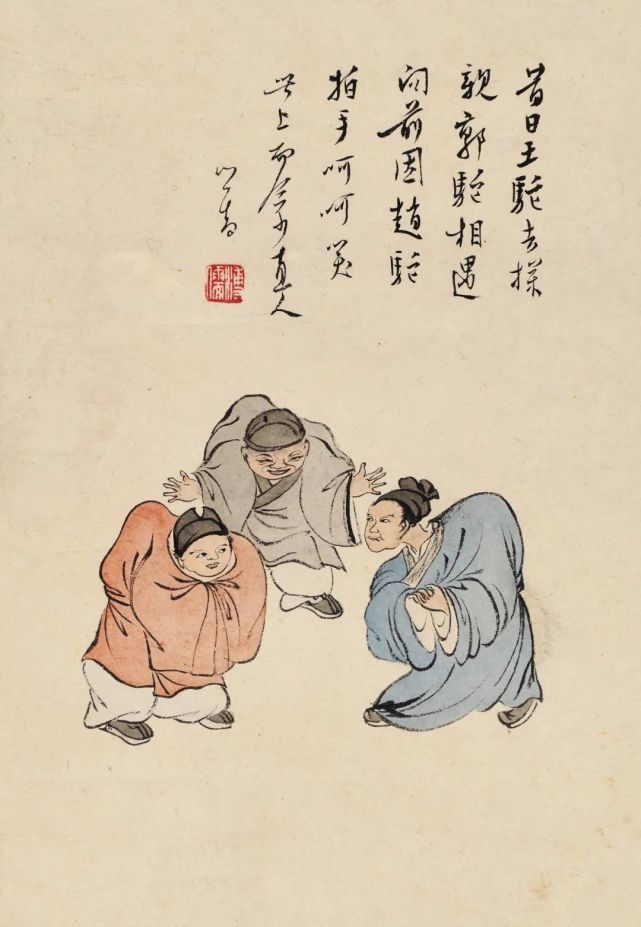 昔日王駝去探
親郭駝相遇
问前因趙駝
拍手呵呵笑
世上而今少直人
心畬
溥儒